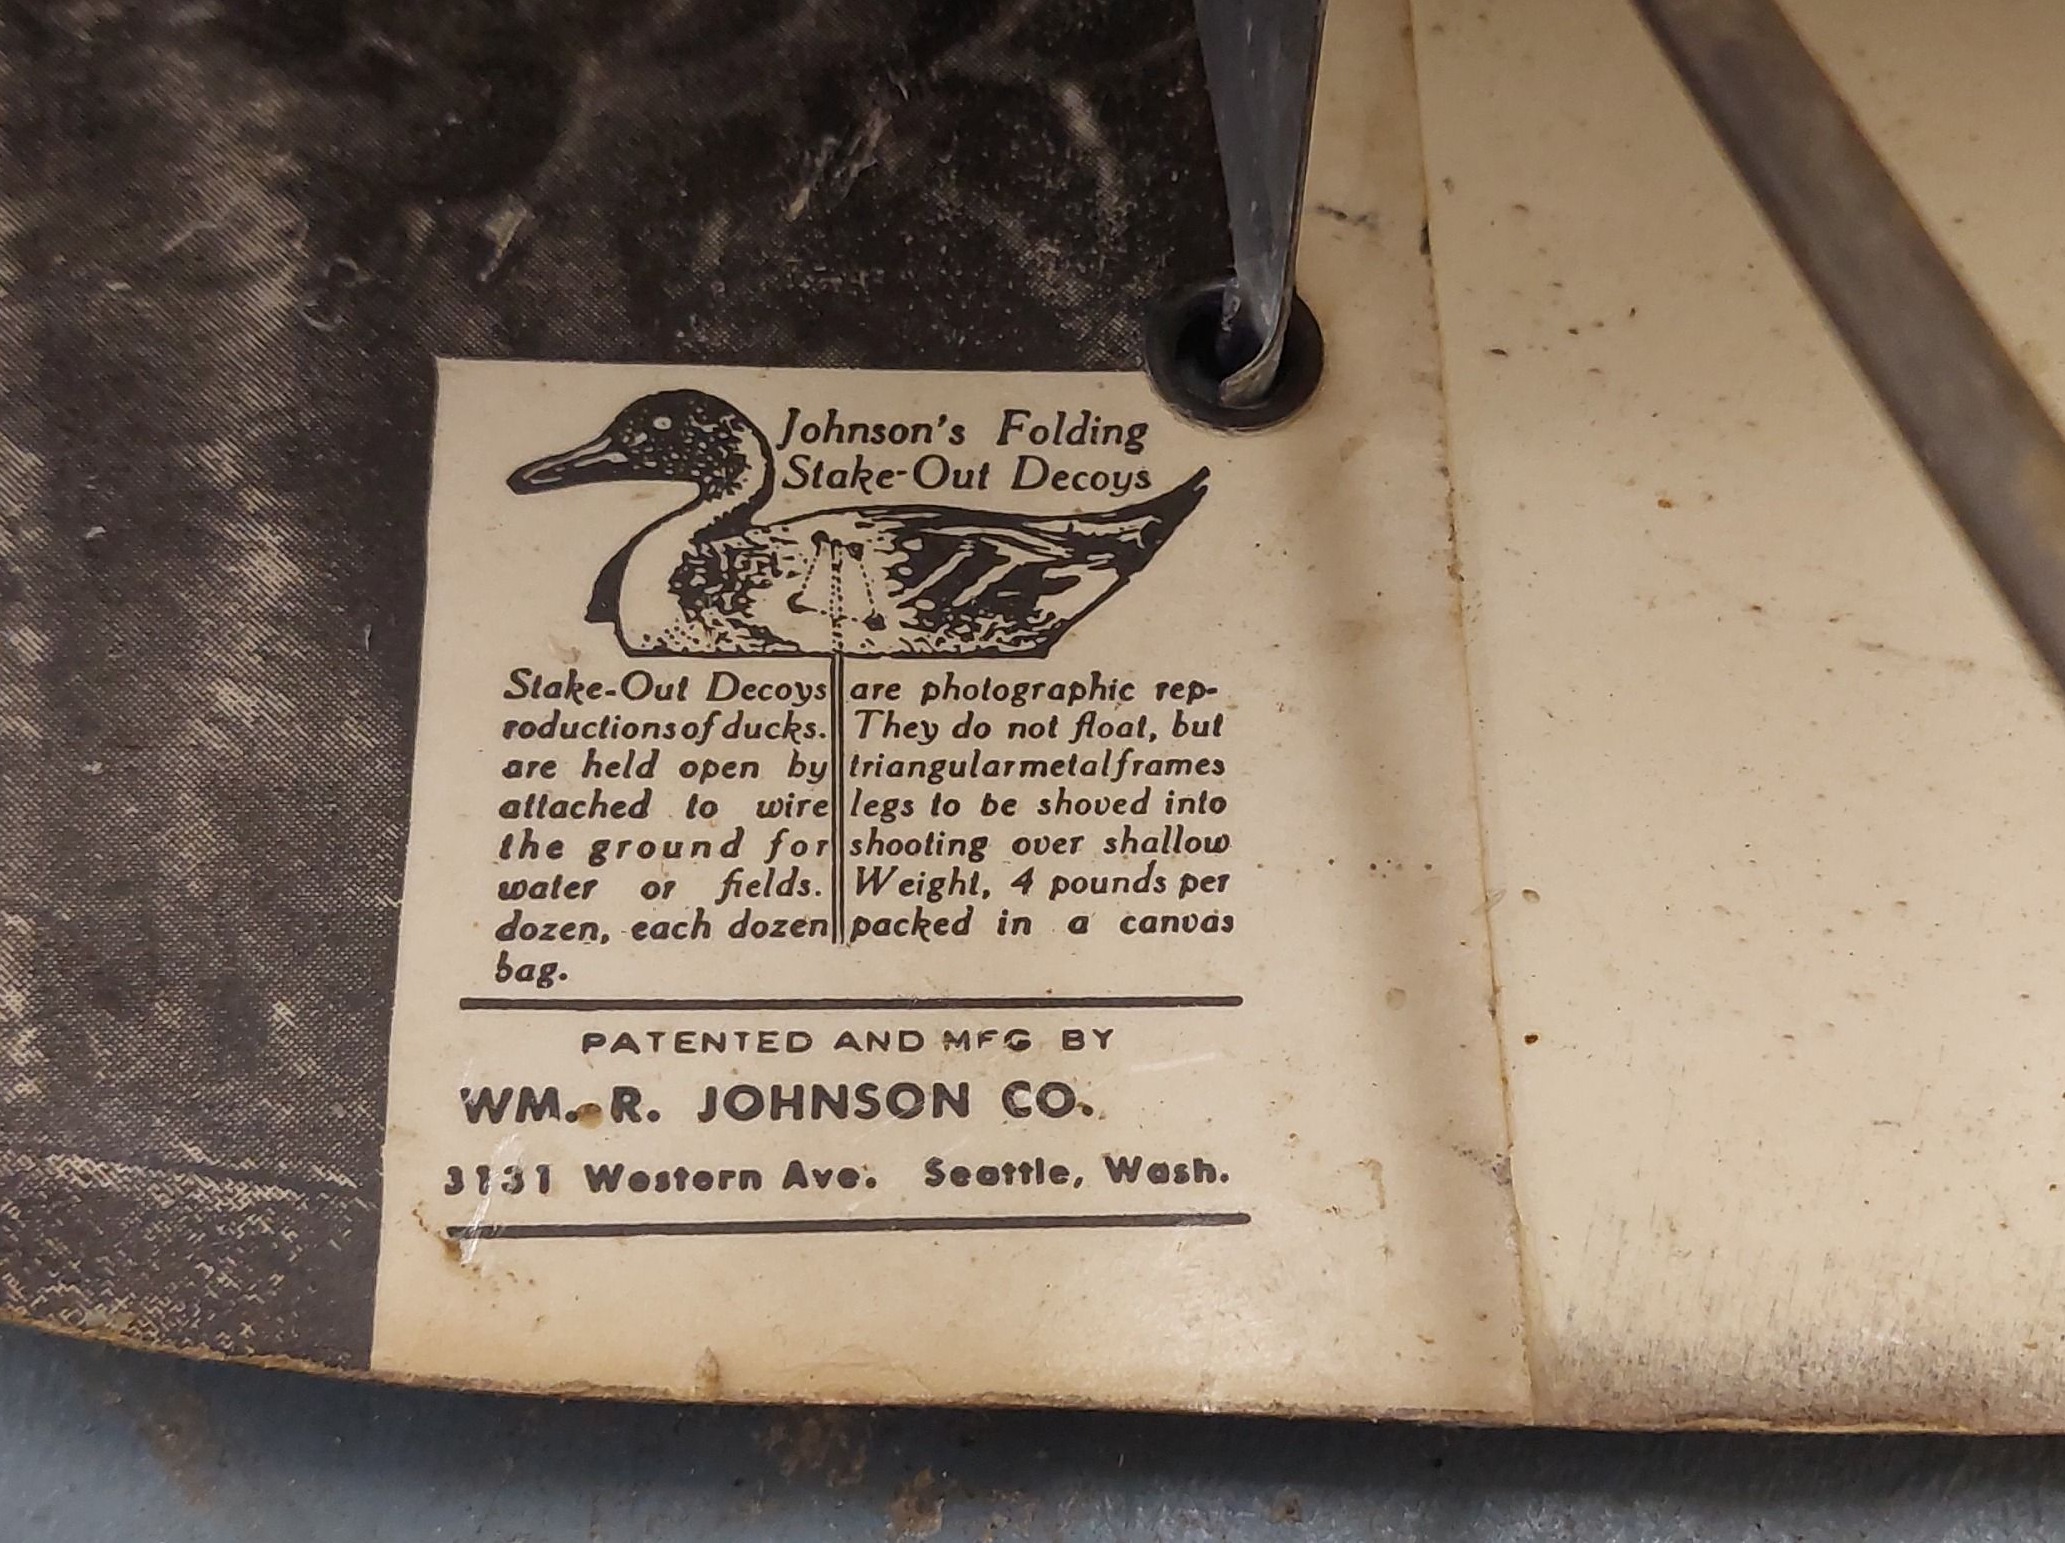 Johnson's Folding
Stake-Out Decoys
Stake-Out Decoys are photographic rep-
roductions of ducks. They do not float, but
are held open by triangular metal frames
attached to wire legs to be shoved into
the ground for shooting over shallow
water or fields. Weight, 4 pounds per
dozen, each dozen packed in a canvas
bag.
PATENTED AND MFG BY
WM. R. JOHNSON CO.
3131 Western Ave. Seattle, Wash.